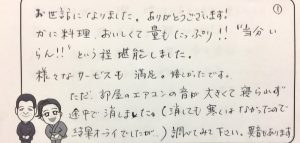 ①
お世話になりました。ありがとうございます！
かに料理、おいしくて量もたっぷり!! "当分い
らん!!" という程堪能しました。
様々なサービスも満足。嬉しかったです。
ただ、部屋のエアコンの音が大きくて寝られず
途中で消しました。(消しても寒くはなかったので
結果オーライでしたが、) 調べてみて下さい。異音があります